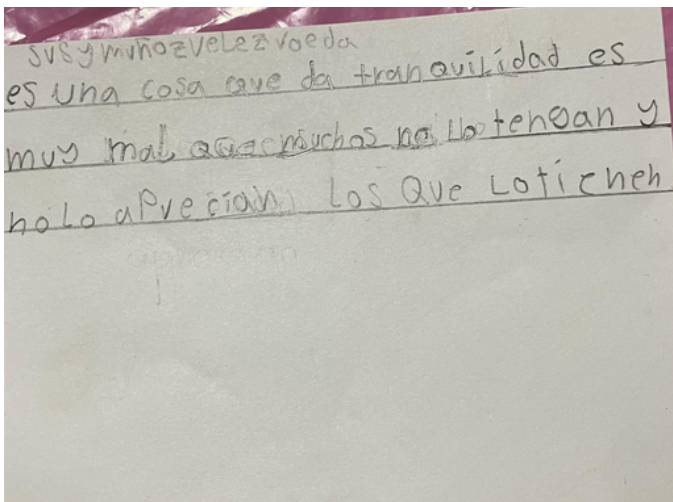 susymuñozvelezvoeda
es una cosa que da tranquilidad es
muy mal que muchos no lo tengan y
nolo aprecian los que Lotienen